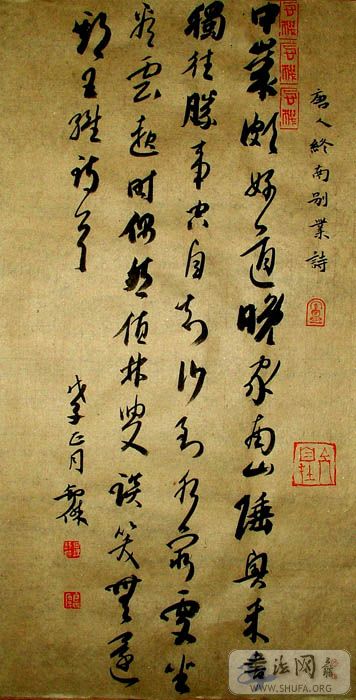 唐人終南別業詩
中歲頗好道晚家南山陲興來每
獨往勝事空自知行到水窮處坐
看雲起時偶然值林叟談笑無還
期王維詩
戊子正月
书法网
WWW.SHUFA.ORG